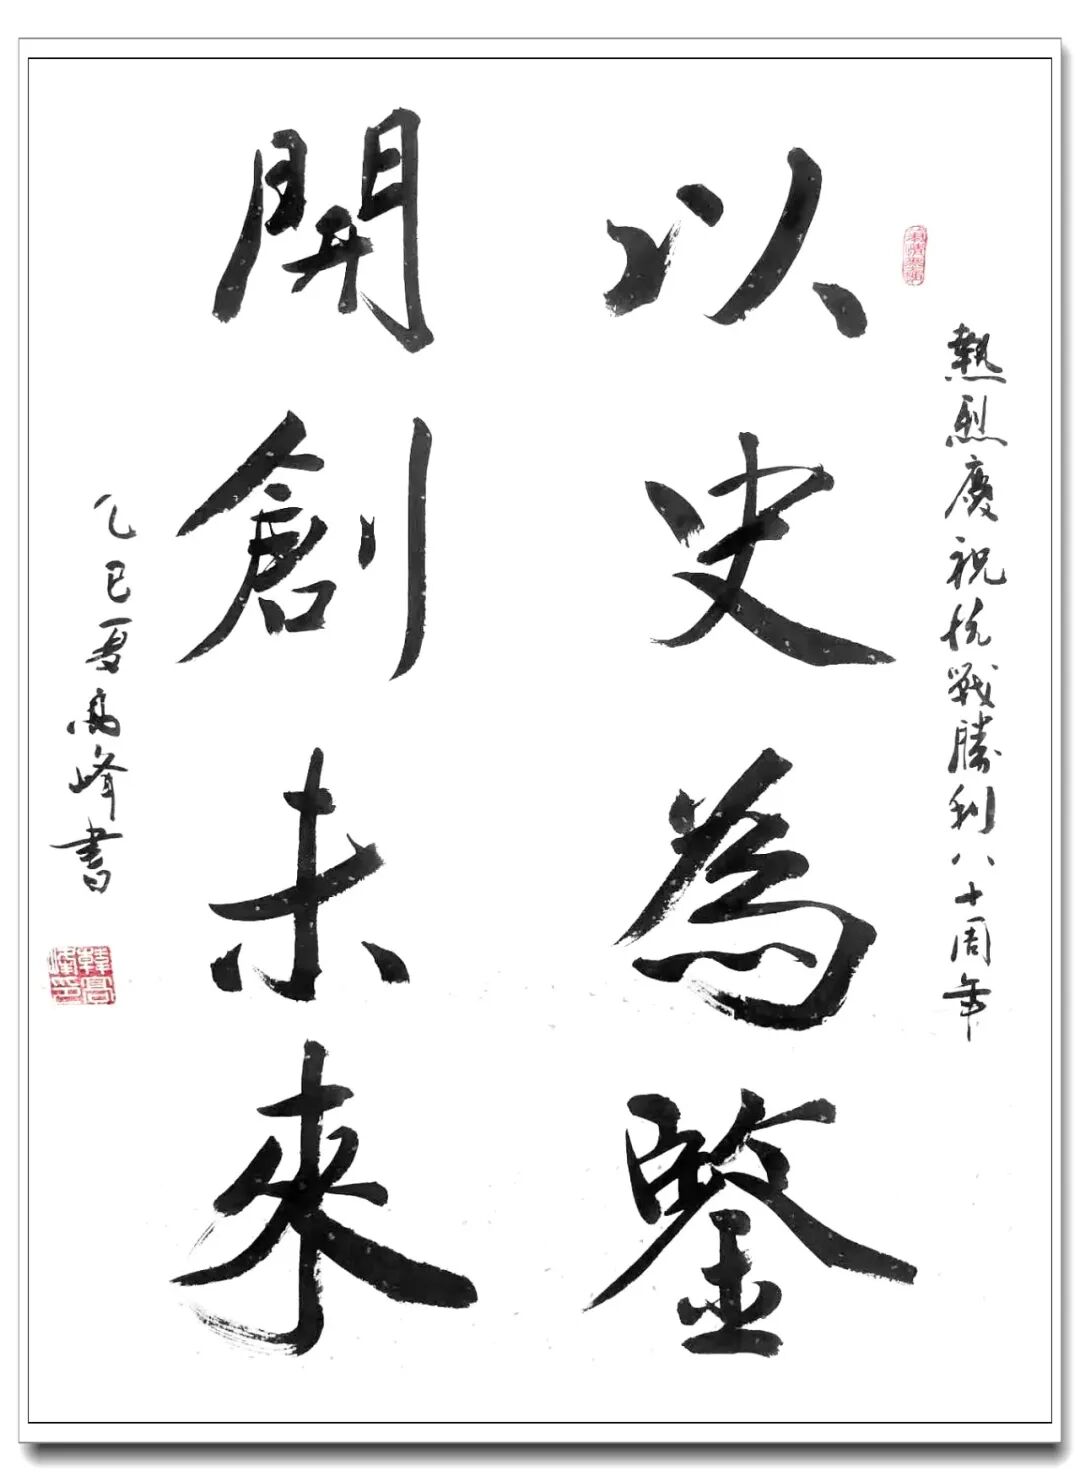 熱烈慶祝抗戰勝利八十周年
以史為鑒
開創未來
乙巳夏高峰書
韓高峰印